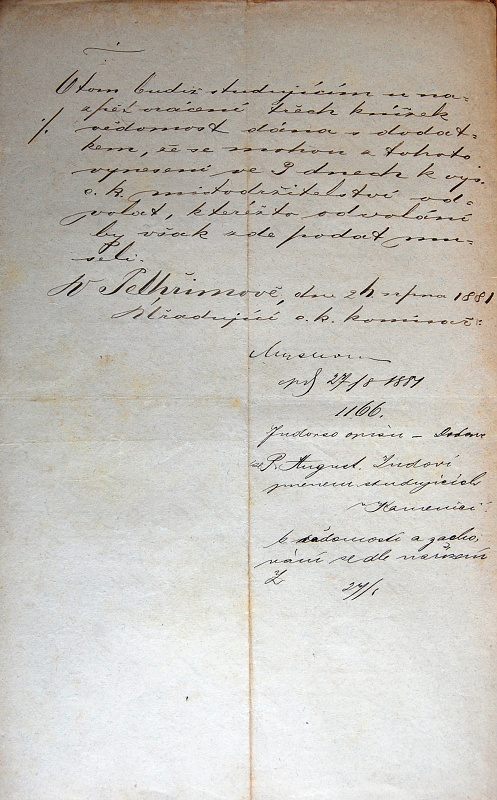 O tom budiž studujícím u na-
zpět vrácení třech knížek
./. vědomost dána s dodat-
kem, že se mohou z tohoto
vynesení ve 3 dnech k vys.
c. k. místodržitelství od-
volat, kteréžto odvolání
by však zde podat mu-
seli.
V Pelhřimově, dne 24 srpna 1881
Úřadující c. k. komisař:
exp 27/8 1881
1166.
Indorso opisu –
P. August.
jménem studujících
v Kamenici.
k vědomosti a zacho-
vání se dle nařízení
27/8